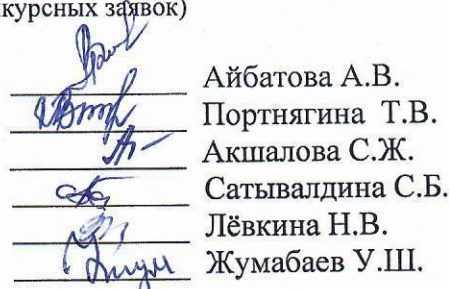 курсных заявок)
Айбатова А.В.
Портнягина Т.В.
Акшалова С.Ж.
Сатывалдина С.Б.
Лёвкина Н.В.
Жумабаев У.Ш.